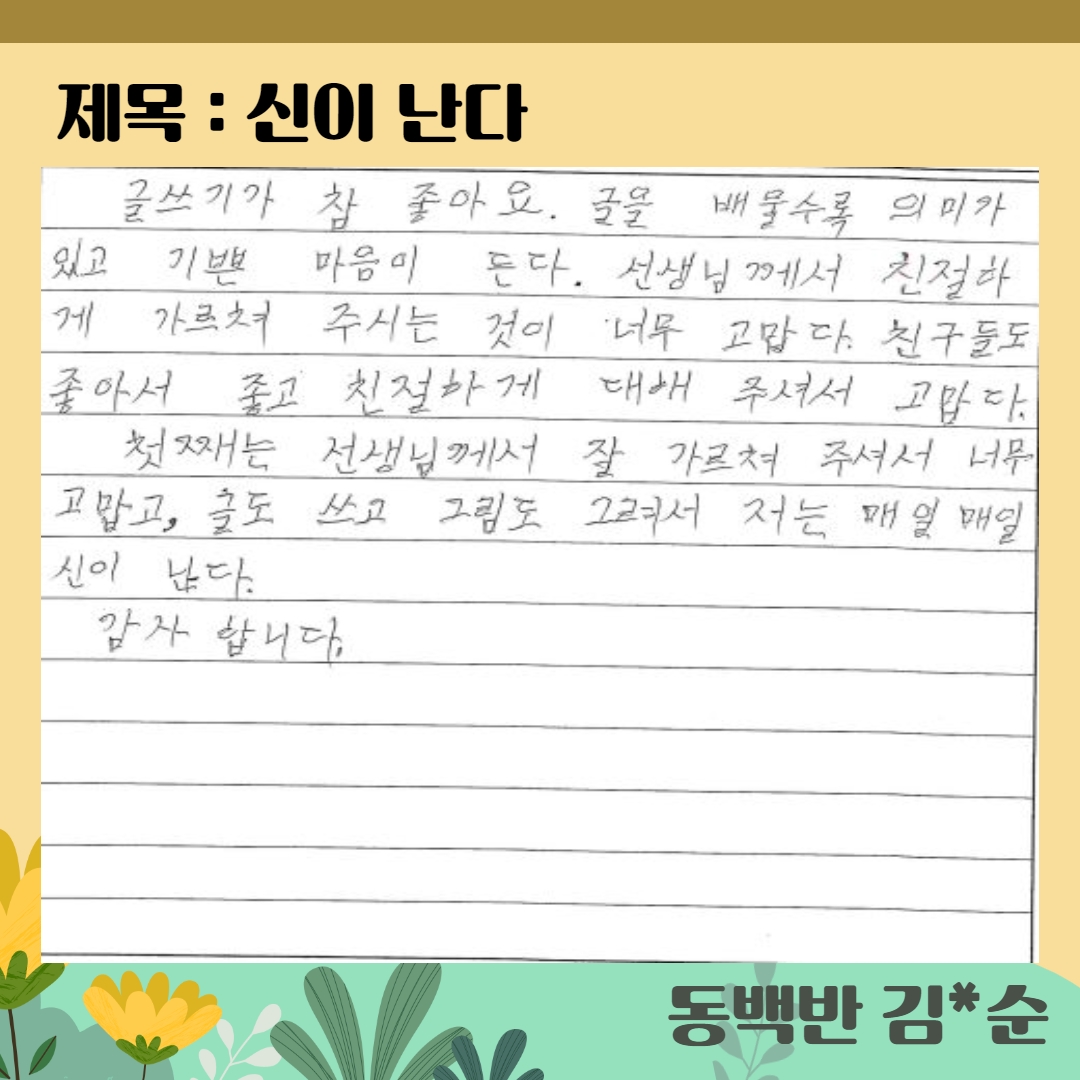 제목 : 신이 난다
글쓰기가 참 좋아요. 글을 배울수록 의미가
있고 기쁜 마음이 든다. 선생님께서 친절하
게 가르쳐 주시는 것이 너무 고맙다. 친구들도
좋아서 좋고 친절하게 대해 주셔서 고맙다.
첫째는 선생님께서 잘 가르쳐 주셔서 너무
고맙고, 글도 쓰고 그림도 그려서 저는 매일 매일
신이 난다.
감자 합니다.
동백반 김*순